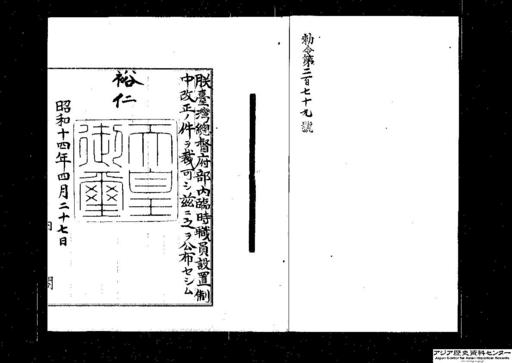 勅令第二百七十九號
朕臺灣總督府部内臨時職員設置制
中改正ノ件ヲ裁可シ茲ニ之ヲ公布セシム
裕仁
天皇
御璽
昭和十四年四月二十七日
アジア歴史資料センター
Japan Center for Asian Historical Records